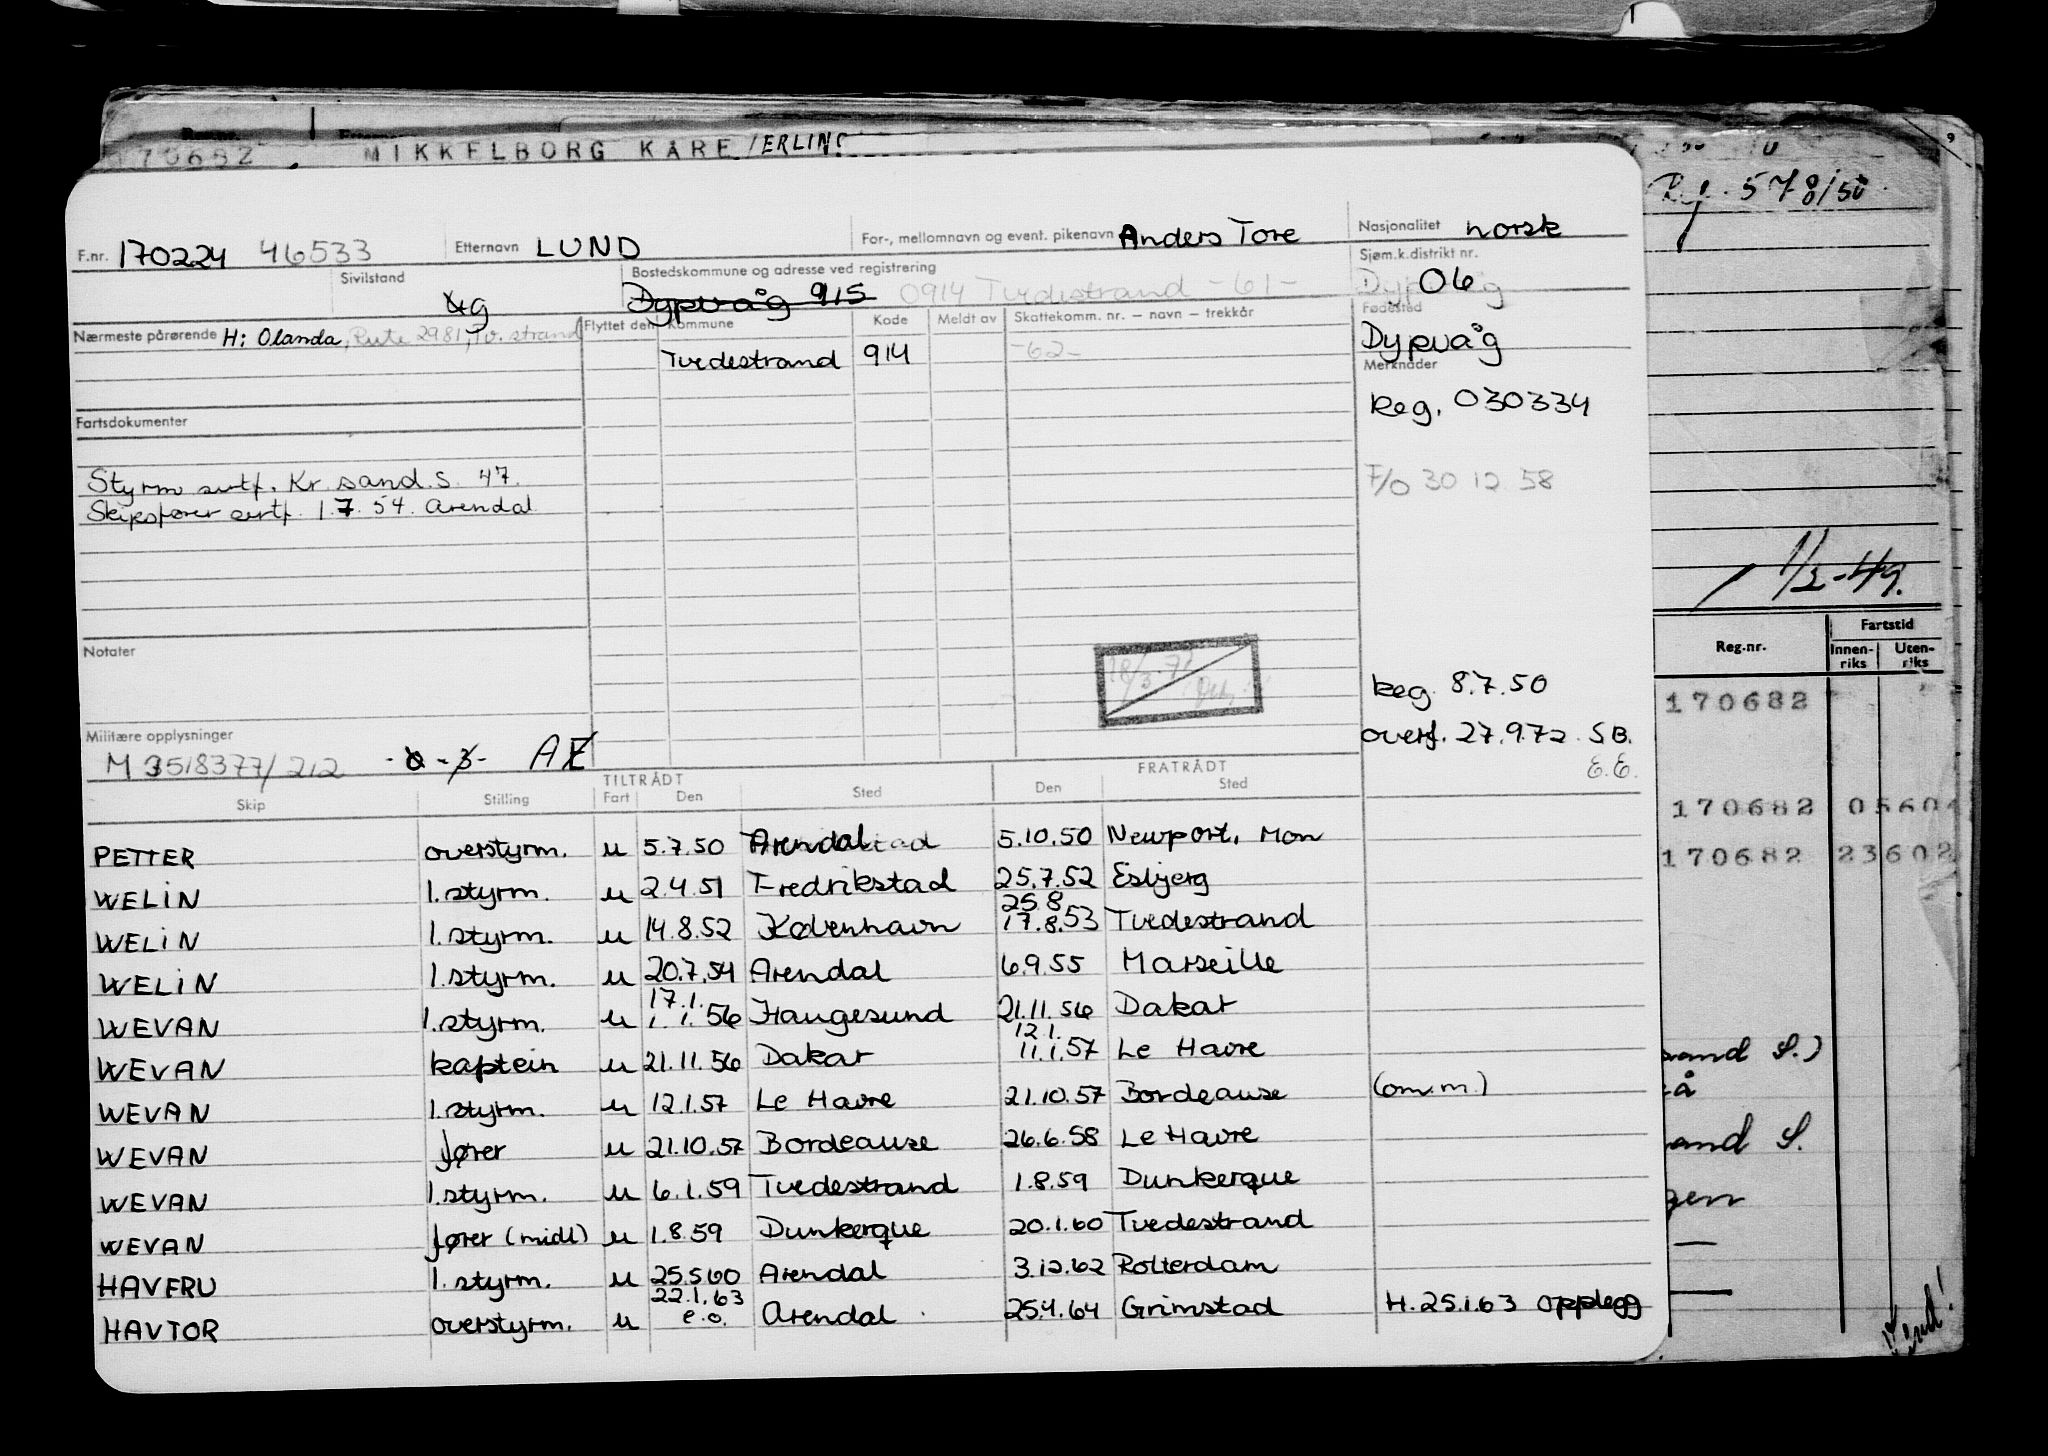 170682 MIKKELBORG KÅRE /ERLING
F.nr. 170224 46533 Etternavn LUND For-, mellomnavn og event. pikenavn Anders Tore Nasjonalitet norsk
Sivilstand g Bostedskommune og adresse ved registrering Dypvåg 915 0914 Tvedestrand -61- Sjøm.k.distrikt nr. 06
Nærmeste pårørende H: Olanda, Rute 2981, Tv.strand Flyttet den Kommune Kode Meldt av Skattekomm. nr. — navn — trekkår Fødested
Tvedestrand 914 -62- Dypvåg
Merknader
Reg. 030334
Fartsdokumenter
F/O 30 12 58
Styrm sertf. Kr.sand.S. 47.
Skipsfører sertf. 1.7.54. Arendal
1/3-49.
Reg.nr. Fartstid
Innenriks Utenriks
Notater
170682
Reg. 8.7.50
Militære opplysninger
overf. 27.9.72 S.B.
M 3518377/212 AE
E.E.
TILTRÅDT FRATRÅDT
Skip Stilling Fart Den Sted Den Sted
170682 05604
PETTER overstyrm. u 5.7.50 Arendal 5.10.50 Newport, Mon
170682 23602
WELIN 1.styrm. u 2.4.51 Fredrikstad 25.7.52 Esbjerg
25.8
WELIN 1.styrm. u 14.8.52 København 17.8.53 Tvedestrand
WELIN 1.styrm. u 20.7.54 Arendal 6.9.55 Marseille
17.1.
WEVAN 1.styrm. u 1.1.56 Haugesund 21.11.56 Dakar
12.1.
WEVAN kaptein u 21.11.56 Dakar 11.1.57 Le Havre
WEVAN 1.styrm. u 12.1.57 Le Havre 21.10.57 Bordeause (om.m.)
WEVAN fører u 21.10.57 Bordeause 26.6.58 Le Havre
WEVAN 1.styrm. u 6.1.59 Tvedestrand 1.8.59 Dunkerque
WEVAN fører (midl) u 1.8.59 Dunkerque 20.1.60 Tvedestrand
HAVFRU 1.styrm. u 25.5.60 Arendal 3.12.62 Rotterdam
22.1.63
HAVTOR overstyrm. u e.o. Arendal 25.4.64 Grimstad H.25.1.63 opplegg